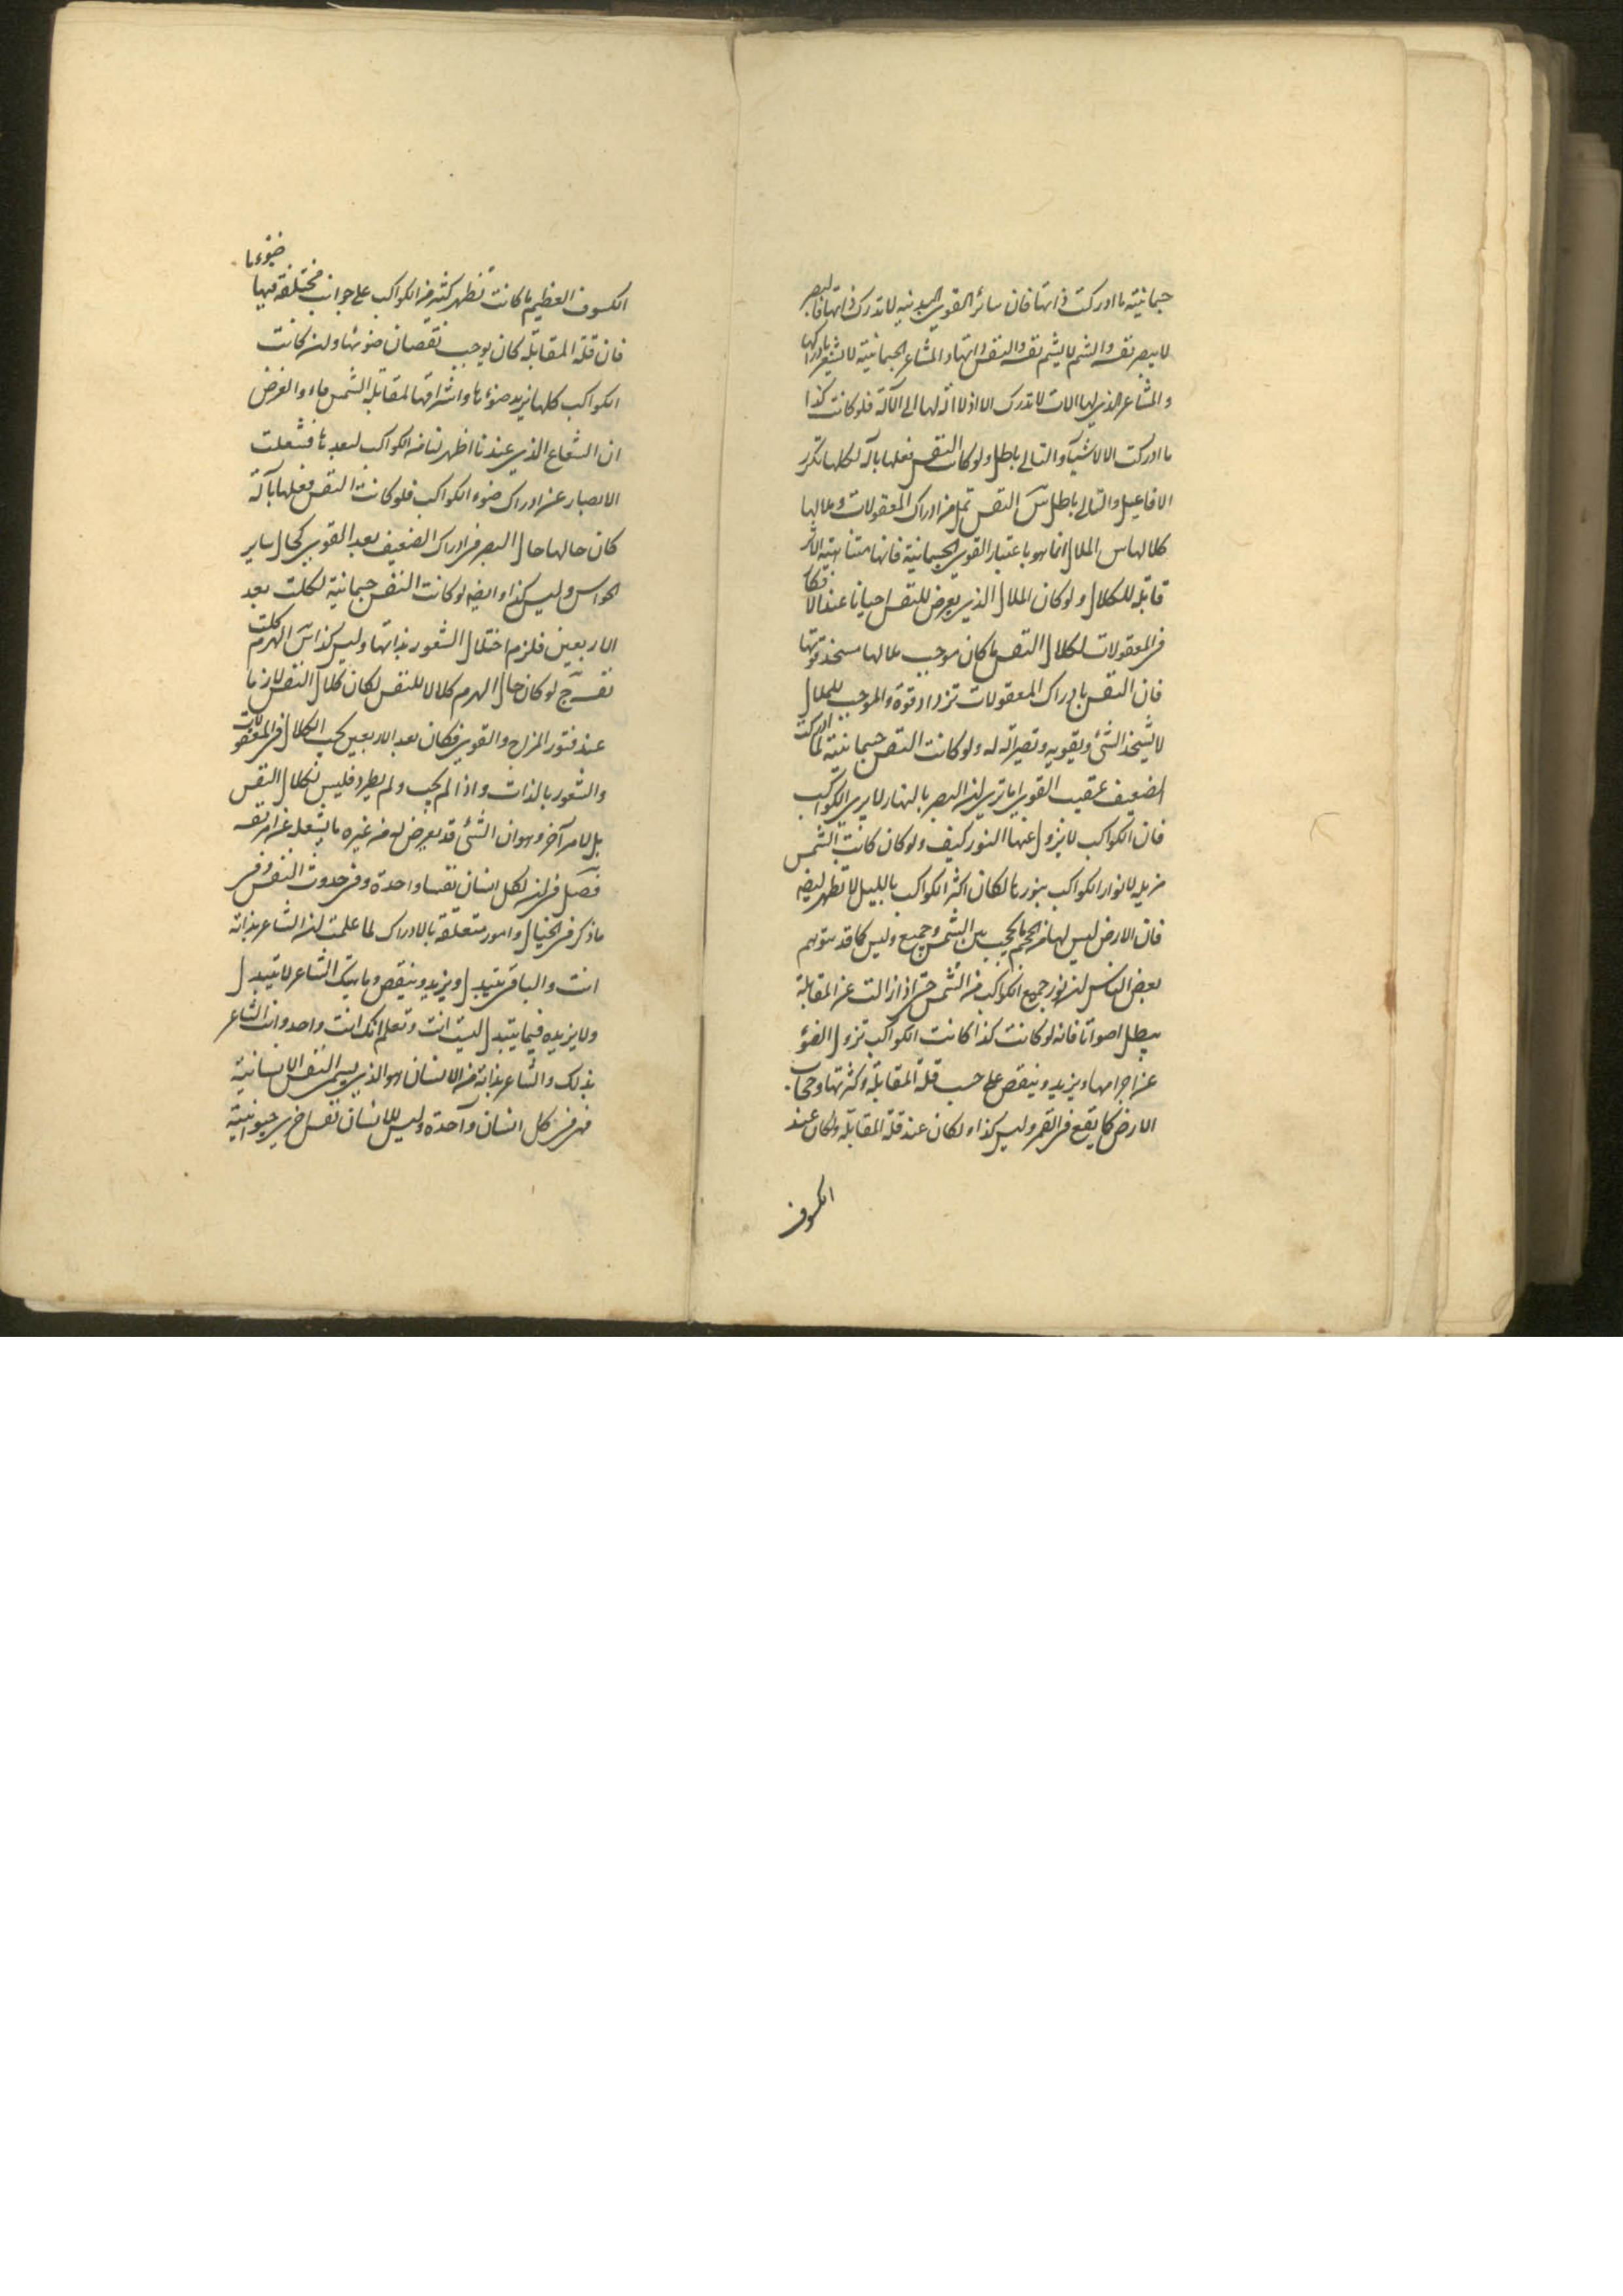 جسمانية ما ادركت ذاتها فان سائر القوى البدنية لا تدرك ذاتها فالبصر
لا يبصر نفسه والشم لا يشم نفسه والنفس ذاتها والمشاعر الجسمانية لا تشعر بادراكها
والمشاعر الذى لها الات لا تدرك الا اذ لا الة لها الى الآلة فلو كانت كذا
ما ادركت الا لا شيئا والتالى باطل ولو كانت النفس فعلها بآلة لكلها تكرر
الافاعيل والتالى باطل س النفس تمل من ادراك المعقولات وملالها
كلالها س الملال انما هو باعتبار القوى الجسمانية فانها متناهية الاثر
قابلة للكلال ولو كان الملال الذى يعرض للنفس احيانا عند الافكار
فى المعقولات لكلال النفس ما كان موجب ملالها مسخذ قوتها
فان النفس بادراك المعقولات تزداد قوة والموجب للملال
لا يشيخذ الشئ ويقويه وتصيرالة له ولو كانت النفس جسمانية لما ادركت
الضعيف عقيب القوى اما ترى ان البصر بالنهار لا يرى الكواكب
فان الكواكب لا يزول عنها النور كيف ولو كان كانت الشمس
مزيله لانوار الكواكب بنورها لكان اكثر الكواكب بالليل لا تظهر ايضه
فان الارض ليس لها من الحجم ما يحجب بين الشمس وجميع وليس كما قد يتوهم
بعض الناس ان نور جميع الكواكب من الشمس حتى اذا زالت عن المقابلة
يبطل اضوائها فانه لو كانت كذا كانت الكواكب تزول الضوء
عن اجرامها ويزيد وينقص على حسب قلة المقابلة وكثرتها وحجاب
الارض كما يقع فى القمر وليس كذا ولكان عند قلة المقابلة ولكان عند
الكسوف
الكسوف العظيم ما كانت تظهر كثير من الكواكب على جوانب مختلفة فيها ضوءها
فان قلة المقابلة كان يوجب نقصان ضوئها ولئن كانت
الكواكب كلها يزيد ضوءها واشراقها لمقابلة الشمس ماء والغرض
ان الشعاع الذى عندنا اظهر لنا من الكواكب لبعدها فشغلت
الابصار عن ادراك ضوء الكواكب فلو كانت النفس فعلها بآلة
كان حالها حال البصر فى ادراك الضعيف بعد القوى كحال ساير
الحواس وليس كذا وايضه لو كانت النفس جسمانية لكلت بعد
الاربعين فلزم اختلال الشعور بذاتها وليس كذا س الهرم كلت
نفسه ج لو كان حال الهرم كلالا للنفس لكان كلال النفس لازما
عند فتور المزاج والقوى فكان بعد الاربعين يجب الكلال فى المعقولات
والشعور بالذات واذا لم يجب ولم يطرد فليس لكلال النفس
بل لامر آخر وهو ان الشئ قد يعرض له من غيره ما يشغله عن امر نفسه
فصل فى ان لكل انسان نفسا واحدة وفى حدوث النفس وفى
ما ذكر فى الخيال وامور متعلقة بالادراك لما علمت ان الشاعر بذاته
انت والباقى يتبدل ويزيد وينقص وما بيتك الشاعر لا يتبدل
ولا يزيده فيما يتبدل ليست انت وتعلم انك انت واحد وانت الشاعر
بذلك والشاعر بذاته من الانسان هو الذى يسمى النفس الانسانية
فهى فى كل انسان واحدة وليس للانسان نفس اخرى حيوانية